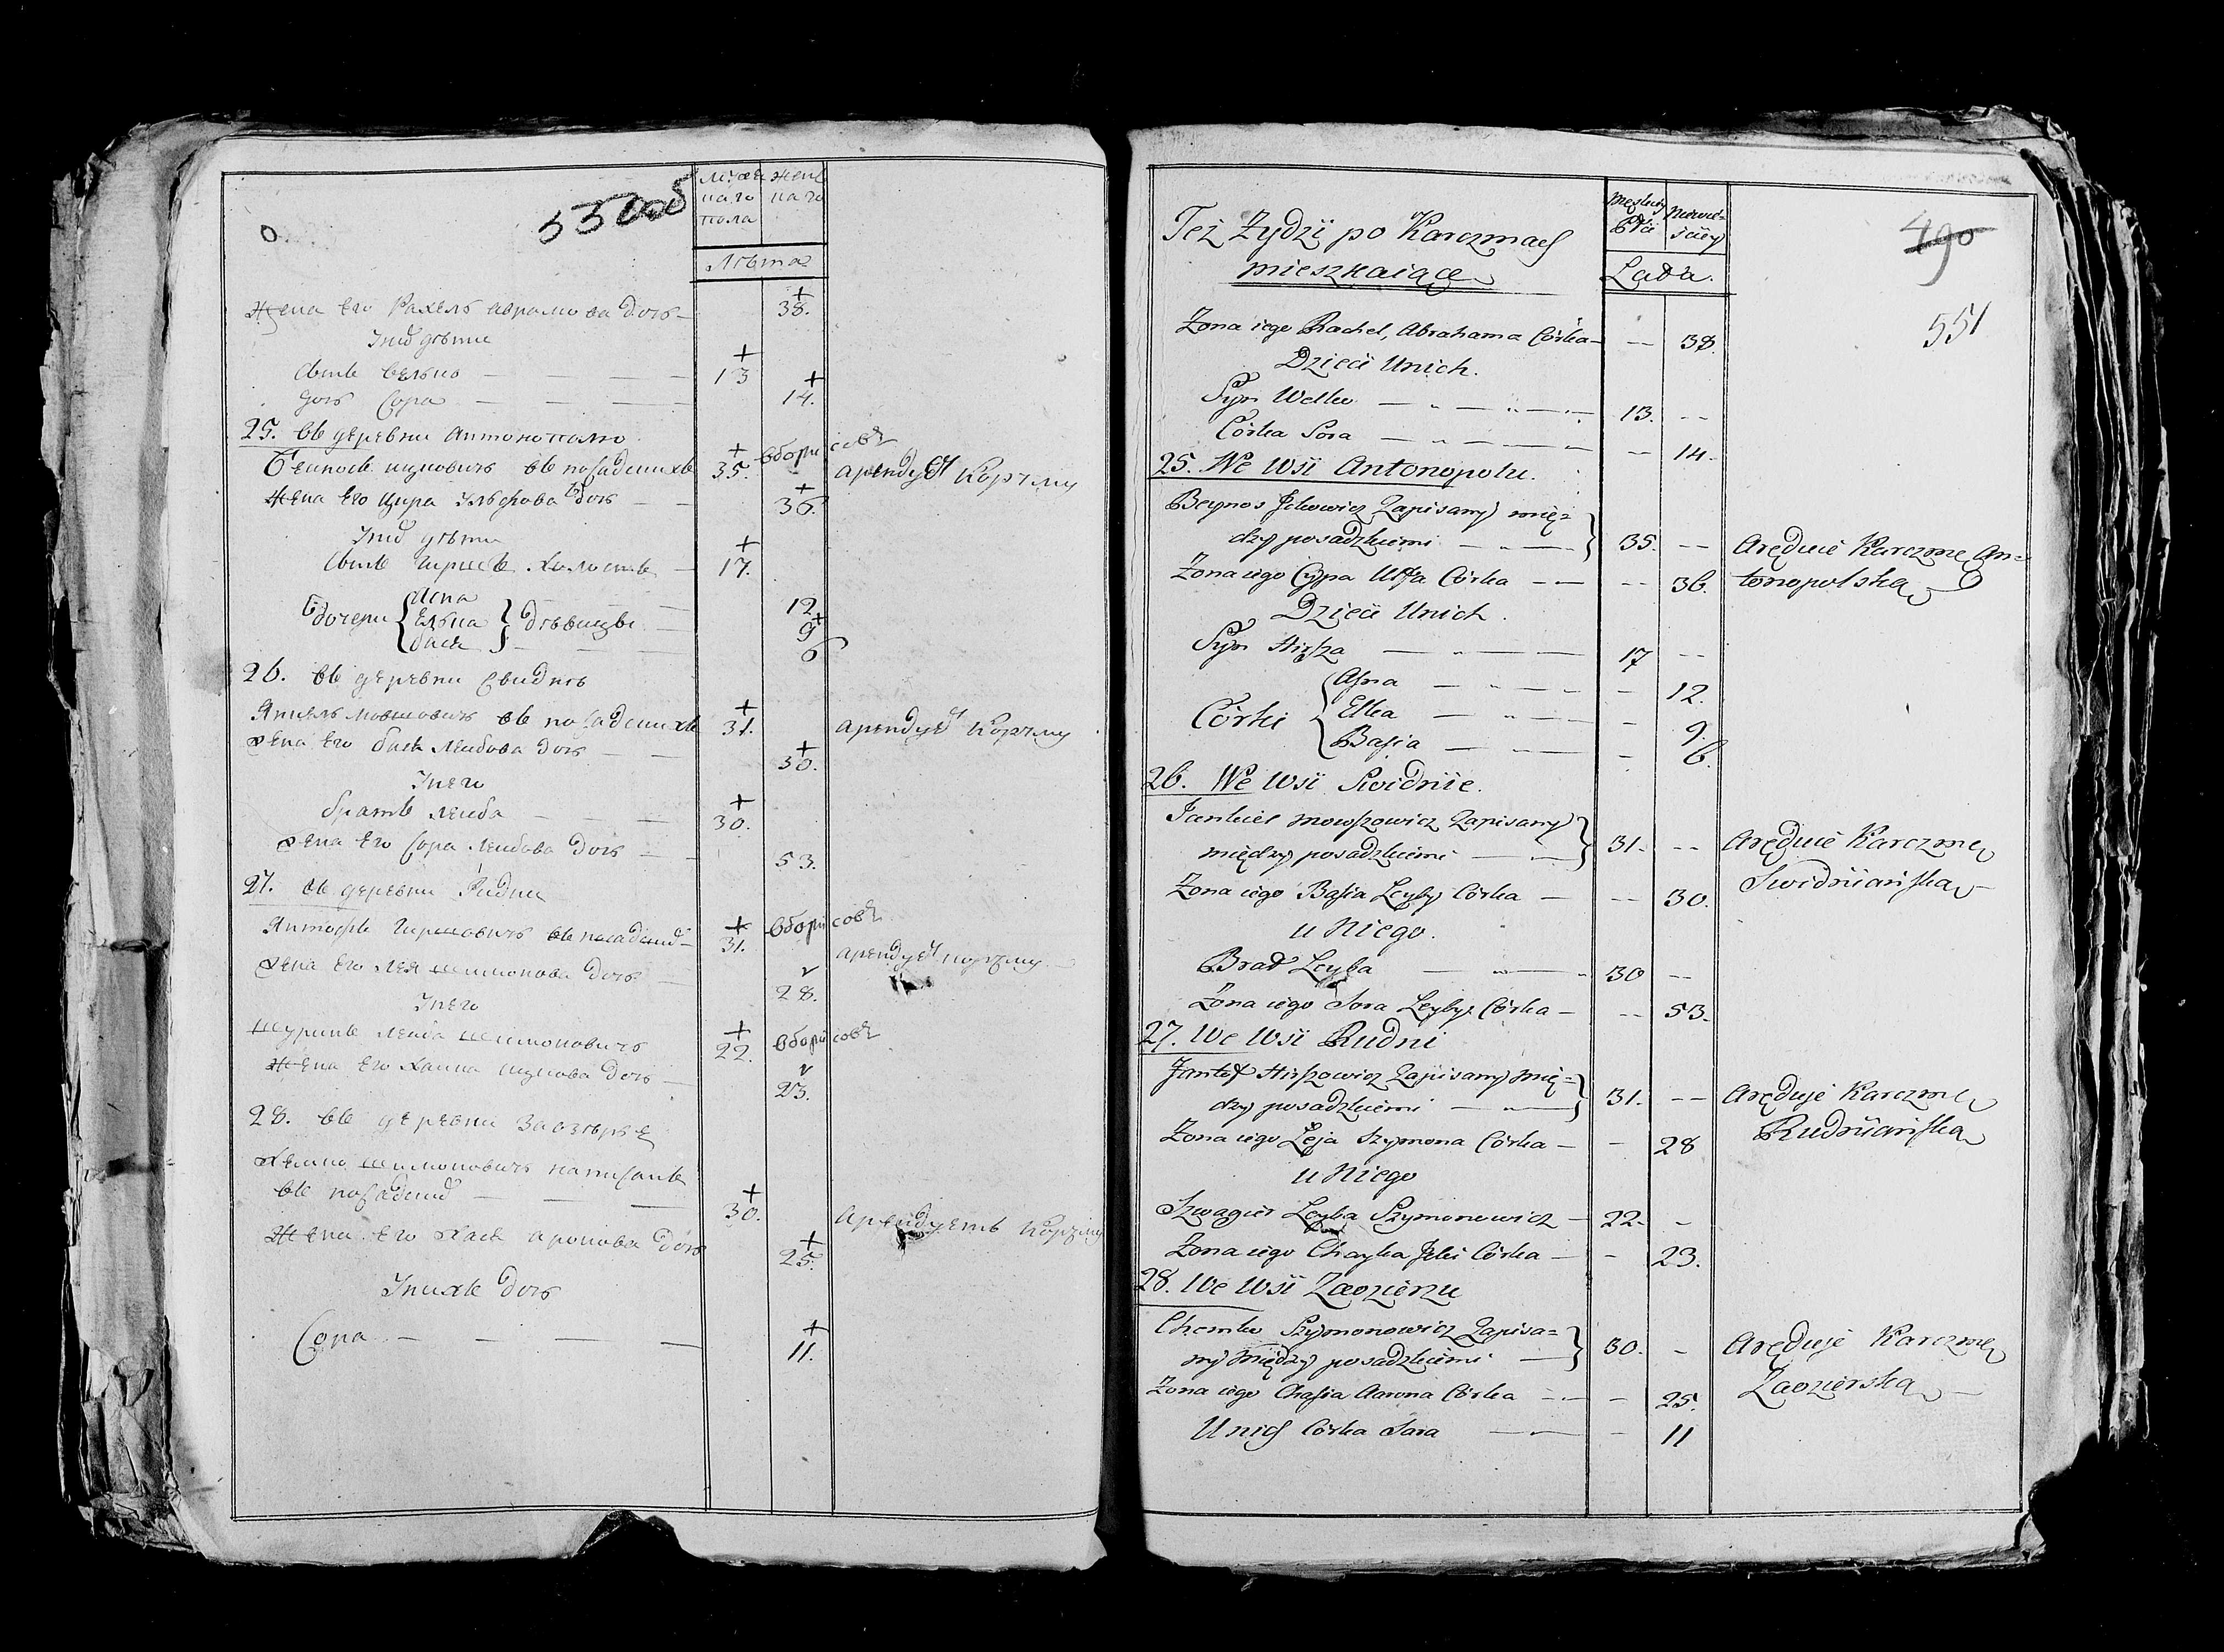 550об
мужескаго пола
женскаго
Лѣта
Жена его Рахель Аврамова дочь — 38.
У нихъ дѣти
Сынъ Велько — — — 13
дочь Сора — — — 14.
25. въ деревни Антонополю
Бейносъ Ицковичъ въ посадскихъ 35. вборисовѣ арендуетъ корчму
Жена его Ципра Ульфова дочь — 36.
У нихъ дѣти
Сынъ Гиршъ холостъ — 17.
дочери { Асна 12
Елька } дѣвицы — 9
бася 6
26. въ деревни Свиднѣ
Янкель Мовшовичъ въ посадскихъ 31. арендуетъ корчму
Жена его бася Лейбова дочь — 30.
У него
братъ Лейба — — — 30.
жена его Сора Лейбова дочь — 53.
27. въ деревни Рудни
Янтофъ Гиршовичъ въ посадскихъ 31. вборисовѣ арендуетъ корчму
жена его Лея шимонова дочь — 28.
У него
шуринъ Лейба шимоновичъ 22. вборисовѣ
Жена его Хайка ицкова дочь — 23.
28. въ деревни Заозѣрье
Хемко шимоновичъ написанъ
въ посадские — — — 30. Арендуетъ корчму
Жена его Хася аронова дочь 25.
У нихъ дочь
Сора — — — — 11.
Też Żydzi po Karczmach
mieszkaiące
Męskiey Płci
Niewieściey
Lata.
490
551
Żona iego Rachel, Abrahama Córka — -- 38.
Dzieci Unich.
Syn Welko — — — 13. --
Córka Sora — — — — 14.
25. We Wsi Antonopolu.
Beynos Jckowicz Zapisany mię=
dzy posadzkiemi — — } 35. -- Aręduie Karczmę An=
Żona iego Cypa Ulfa Córka — — -- 36. tonopolską
Dzieci Unich.
Syn Hirsza — — — 17 --
Córki { Asna — — — 12.
Elka — — — 9.
Basia — — — 6.
26. We Wsi Swidnie.
Jankiel Mowszowicz Zapisany
między posadzkiemi — — } 31. -- Aręduie Karczmę
Żona iego Basia Leyby Córka — -- 30. Swidniańską —
u Niego.
Brat Leyba — — — 30 --
Żona iego Sora Leyby Córka — -- 53.
27. We Wsi Rudni
Jantof Hirszowicz Zapisany mię=
dzy posadzkiemi — — } 31. -- Aręduje Karczmę
Żona iego Leja Szymona Córka — - 28 Rudniańską
u Niego
Szwagier Leyba Szymonowicz — 22. -
Żona iego Chayka Jcki Córka — - 23.
28. We Wsi Zaozierzu
Chemko Szymonowicz Zapisa=
ny między posadzkiemi — } 30. - Aręduje Karczmę
Żona iego Chasia Aarona Córka — - 25. Zaozierską —
Unich Córka Sara — — - 11